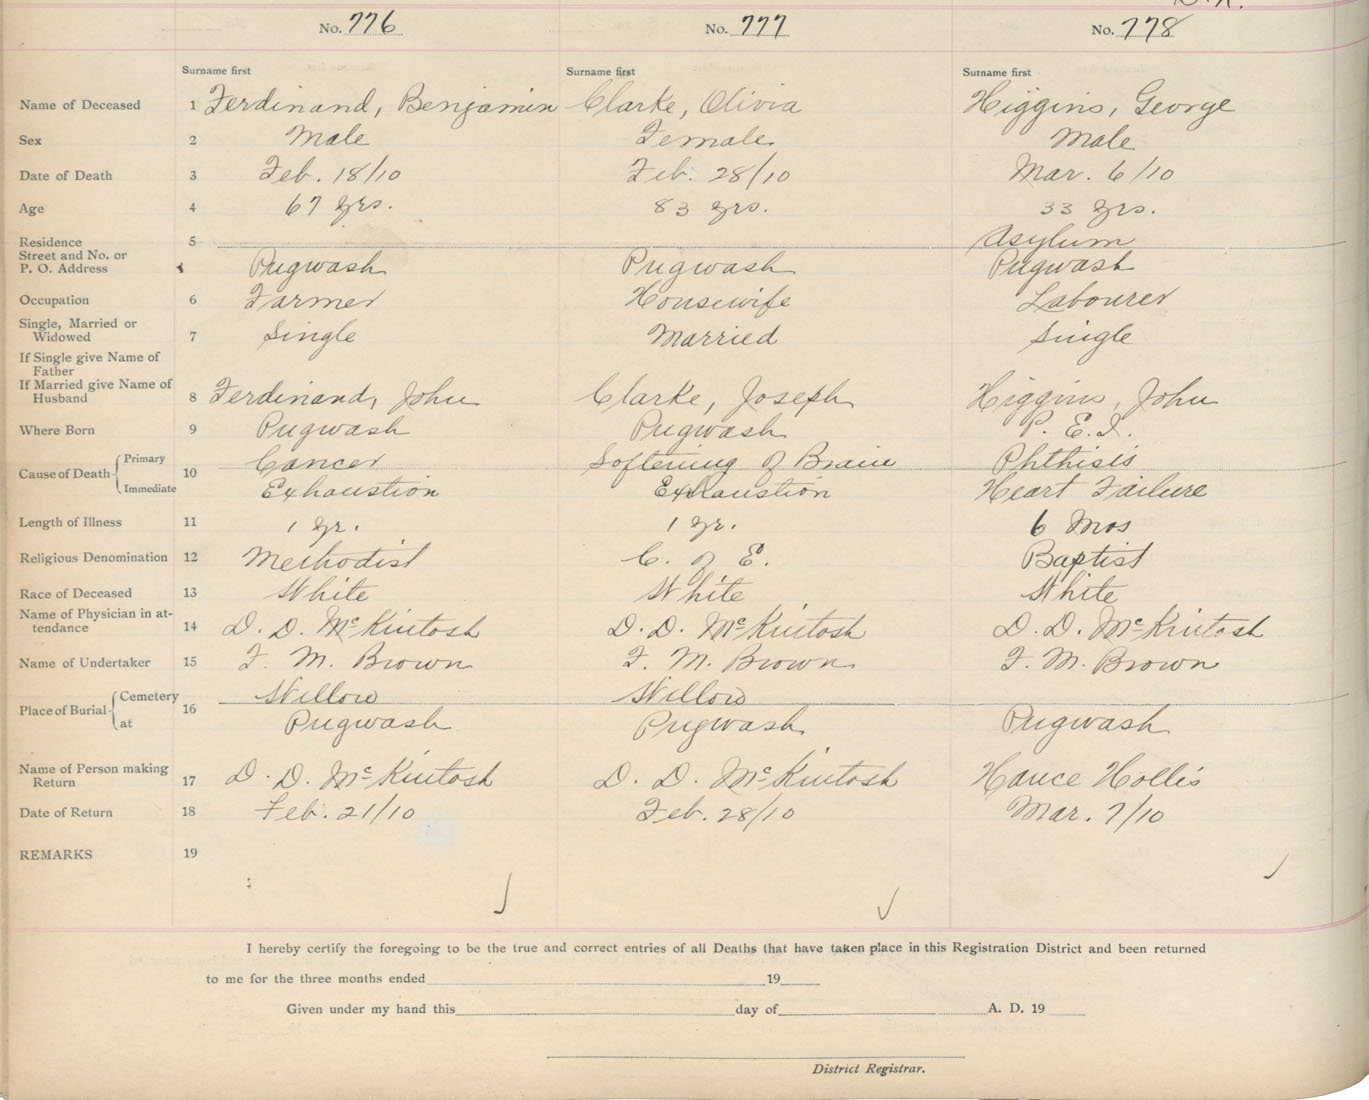 No. 776 No. 777 No. 778
Surname first Surname first Surname first
Name of Deceased 1 Ferdinand, Benjamin Clarke, Olivia Higgins, George
Sex 2 Male Female Male
Date of Death 3 Feb. 18/10 Feb. 28/10 Mar. 6/10
Age 4 67 yrs. 83 yrs. 33 yrs.
Residence 5 Asylum
Street and No. or
P. O. Address Pugwash Pugwash Pugwash
Occupation 6 Farmer Housewife Labourer
Single, Married or
Widowed 7 Single Married Single
If Single give Name of
Father
If Married give Name of
Husband 8 Ferdinand, John Clarke, Joseph Higgins, John
Where Born 9 Pugwash Pugwash P. E. I.
Cause of Death 10 Primary Cancer Softening of Brain Phthisis
Immediate Exhaustion Exhaustion Heart Failure
Length of Illness 11 1 yr. 1 yr. 6 Mos
Religious Denomination 12 Methodist C. of E. Baptist
Race of Deceased 13 White White White
Name of Physician in at-
tendance 14 D. D. McKintosh D. D. McKintosh D. D. McKintosh
Name of Undertaker 15 F. M. Brown F. M. Brown F. M. Brown
Place of Burial 16 Cemetery Willow Willow
at Pugwash Pugwash Pugwash
Name of Person making
Return 17 D. D. McKintosh D. D. McKintosh Hance Hollis
Date of Return 18 Feb. 21/10 Feb. 28/10 Mar. 7/10
REMARKS 19
I hereby certify the foregoing to be the true and correct entries of all Deaths that have taken place in this Registration District and been returned
to me for the three months ended 19
Given under my hand this day of A. D. 19
District Registrar.